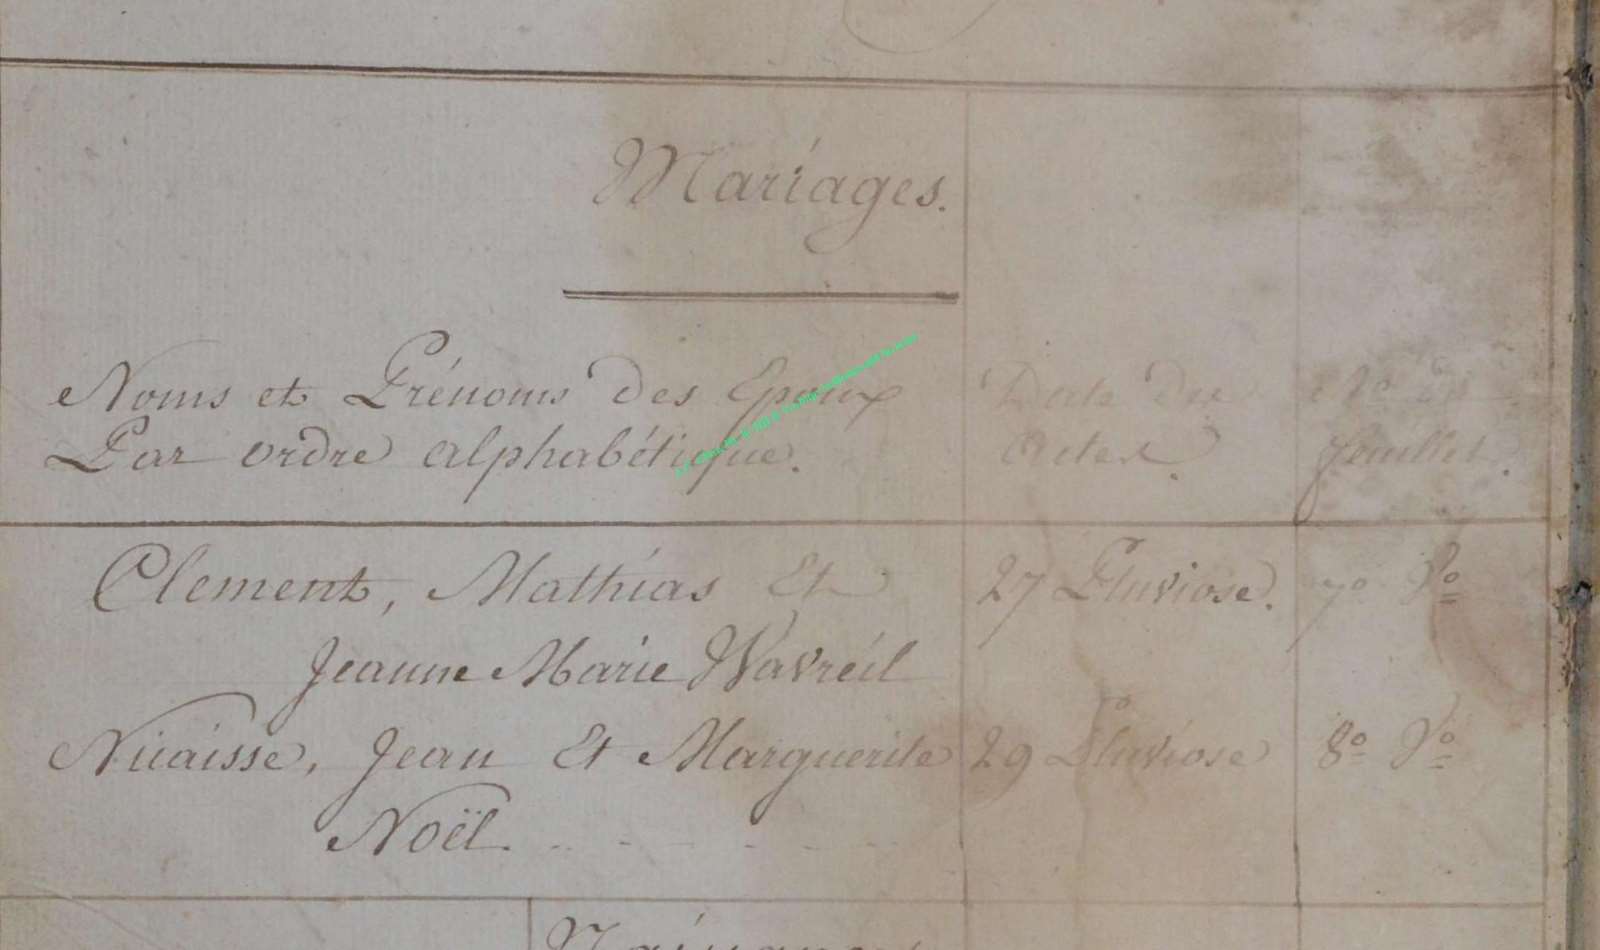 Mariages.
Noms et Prénoms des Epoux
Par ordre alphabétique.
Date des
Actes.
feuillet.
Clement, Mathias Et 27 Pluviose. 7º Vº
Jeanne Marie Wavreil
Nicaisse, Jean Et Marguerite 29 Pluviose 8º Vº
Noël.